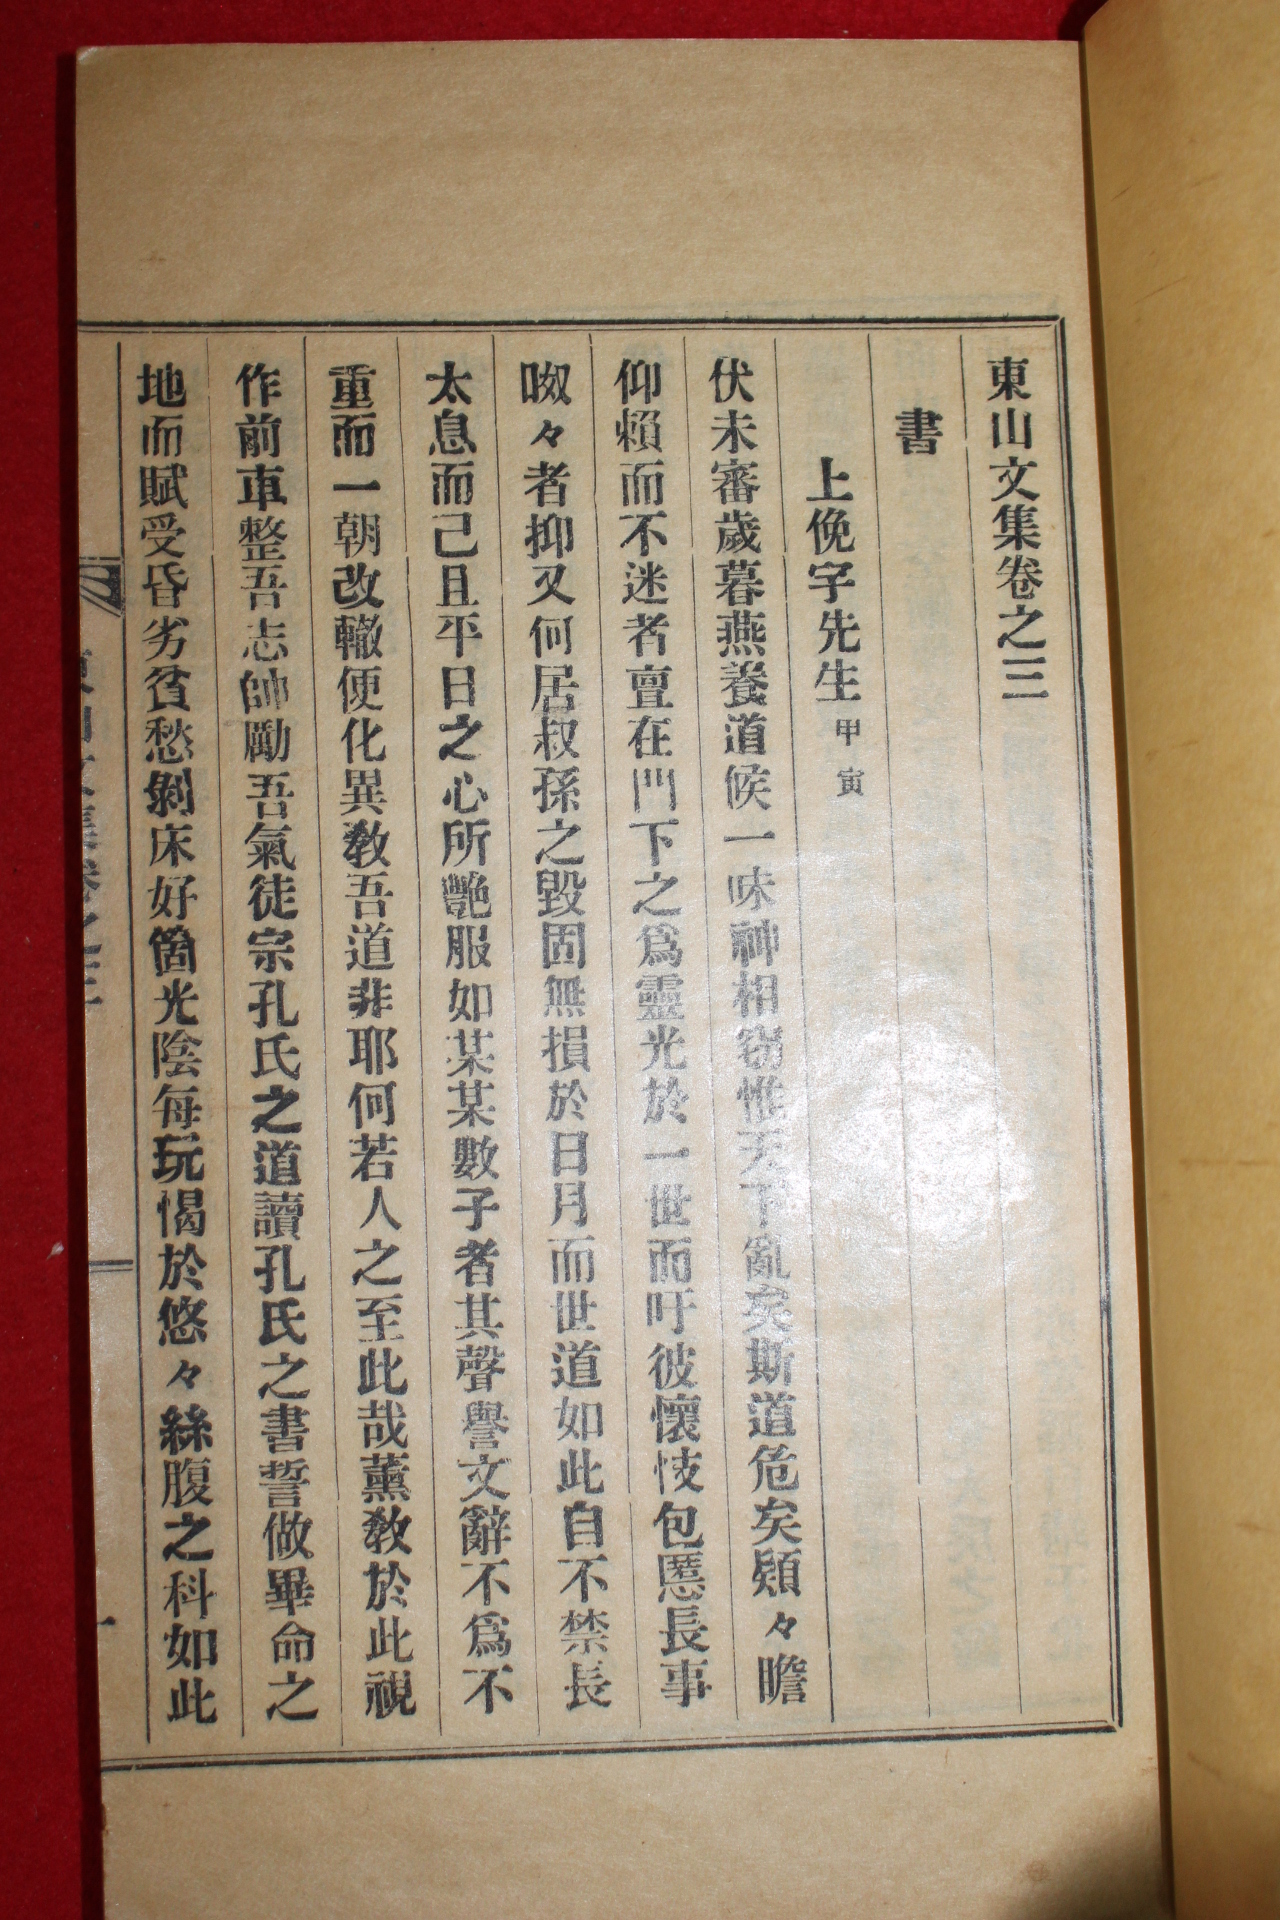 東山文集卷之三
書
上俛宇先生 甲寅
伏未審歲暮燕養道候一味神相窃惟天下亂矣斯道危矣顒々瞻
仰賴而不迷者亶在門下之爲靈光於一世而吁彼懷忮包慝長事
呶々者抑又何居叔孫之毀固無損於日月而世道如此自不禁長
太息而己且平日之心所艶服如某某數子者其聲譽文辭不爲不
重而一朝改轍便化異敎吾道非耶何若人之至此哉薰敎於此視
作前車整吾志帥勵吾氣徒宗孔氏之道讀孔氏之書誓做畢命之
地而賦受昏劣貧愁剝床好箇光陰每玩愒於悠々絲腹之科如此
東山文集卷之三
一